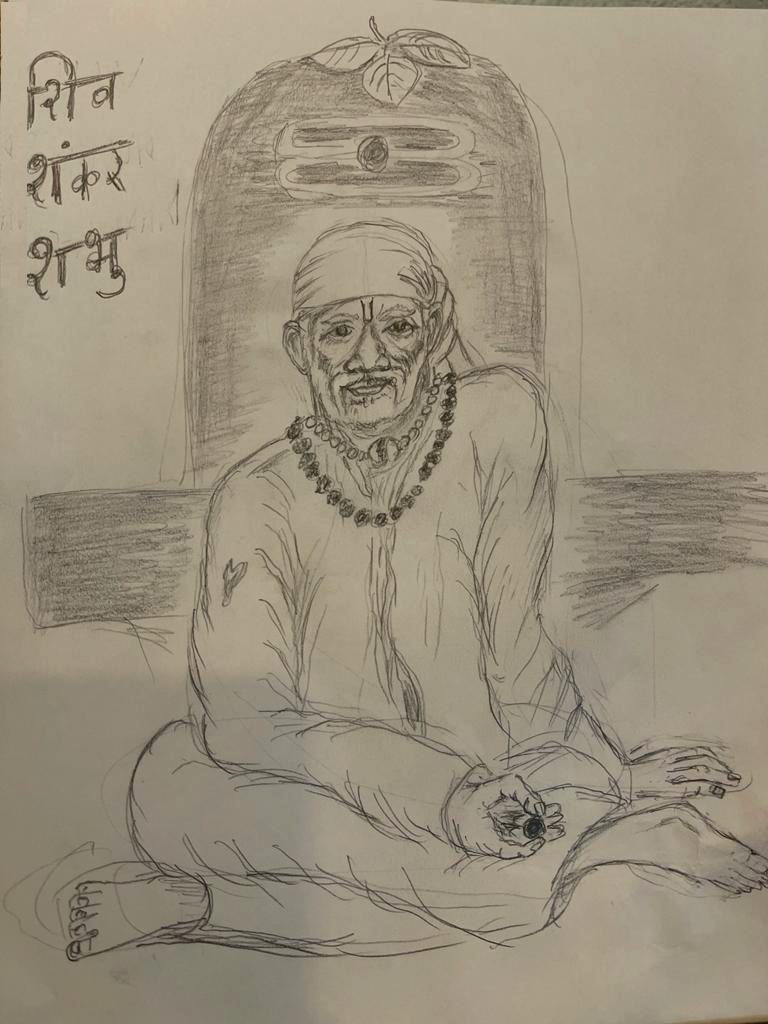 शिव
शंकर
शभु